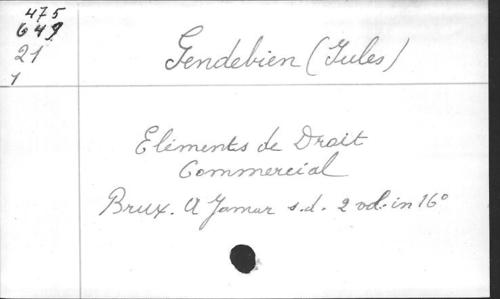 475
649
21
1
Gendebien (Jules)
Eléments de Droit
Commercial
Brux. A Jamar s.d. 2 vol. in 16°